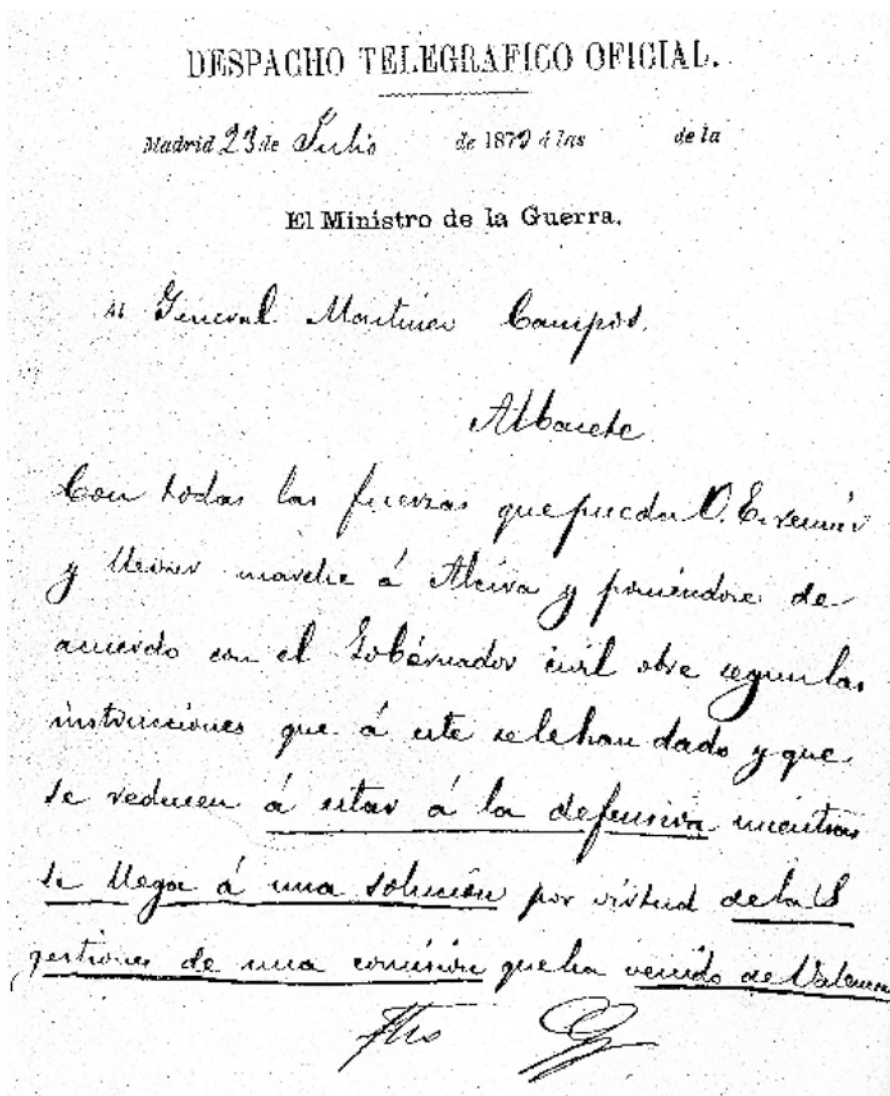 DESPACHO TELEGRAFICO OFICIAL.
Madrid 23 de Julio de 187 á las de la
El Ministro de la Guerra.
Al General Martinez Campos.
Albacete
Con todas las fuerzas que pueda V. E. reunir
y llevar marche á Alcira y poniéndose de
acuerdo con el Gobernador civil obre segun las
instrucciones que á este se le han dado y que
se reducen á estar á la defensiva mientras
se llega á una solución por virtud de las
gestiones de una comisión que ha venido de Valencia